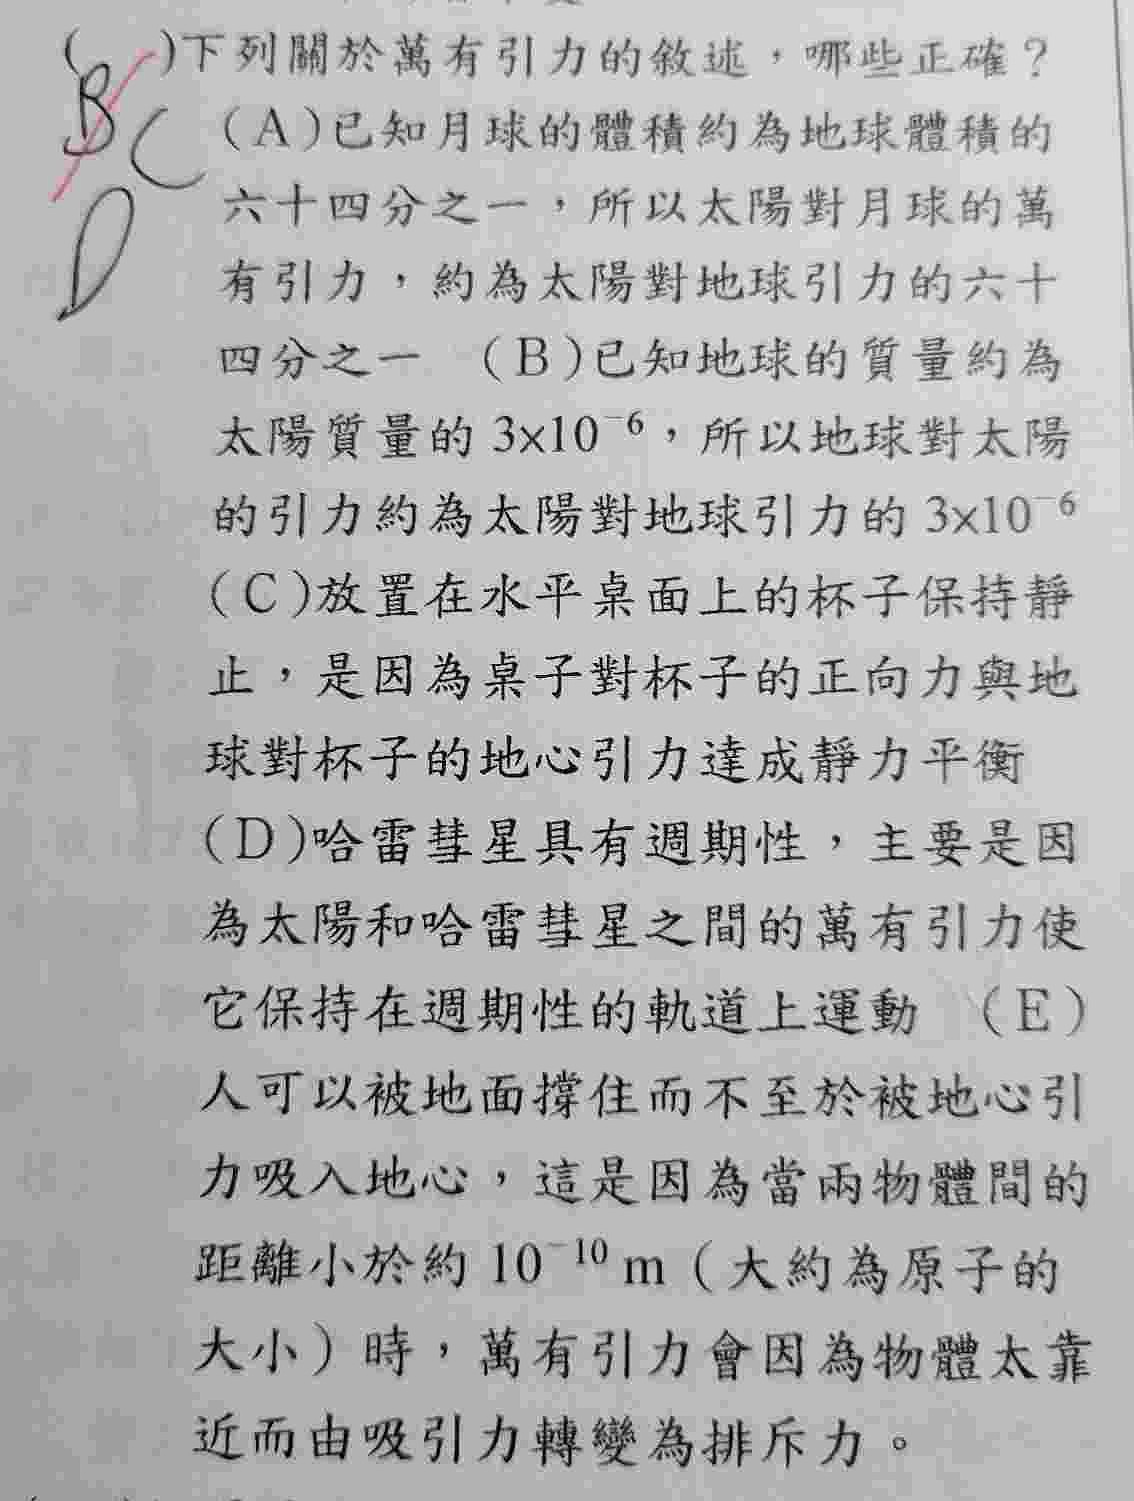 ( )下列關於萬有引力的敘述，哪些正確？
B
C
D
(A)已知月球的體積約為地球體積的
六十四分之一，所以太陽對月球的萬
有引力，約為太陽對地球引力的六十
四分之一 (B)已知地球的質量約為
太陽質量的 3×10⁻⁶，所以地球對太陽
的引力約為太陽對地球引力的 3×10⁻⁶
(C)放置在水平桌面上的杯子保持靜
止，是因為桌子對杯子的正向力與地
球對杯子的地心引力達成靜力平衡
(D)哈雷彗星具有週期性，主要是因
為太陽和哈雷彗星之間的萬有引力使
它保持在週期性的軌道上運動 (E)
人可以被地面撐住而不至於被地心引
力吸入地心，這是因為當兩物體間的
距離小於約 10⁻¹⁰ m（大約為原子的
大小）時，萬有引力會因為物體太靠
近而由吸引力轉變為排斥力。